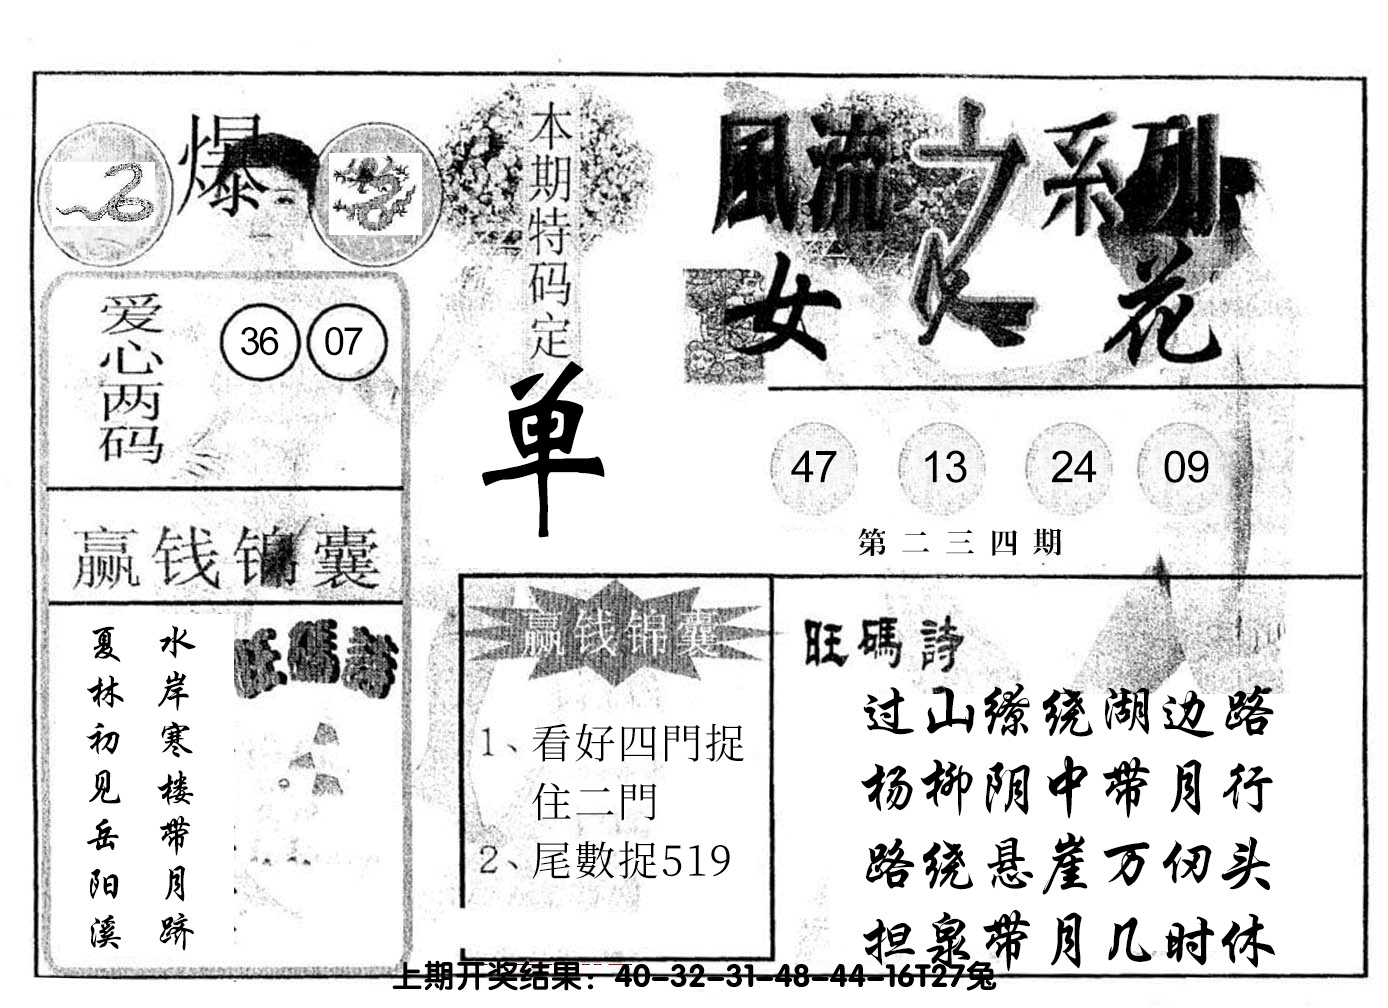 爆
本期特码定
单
風流之系列
女人花
爱心两码
36 07
47 13 24 09
第二三四期
赢钱锦囊
水岸寒楼带月跻
夏林初见岳阳溪
旺碼詩
赢钱锦囊
1、看好四門捉
住二門
2、尾數捉519
旺碼詩
过山缭绕湖边路
杨柳阴中带月行
路绕悬崖万仞头
担泉带月几时休
上期开奖结果：40-32-31-48-44-16T27兔